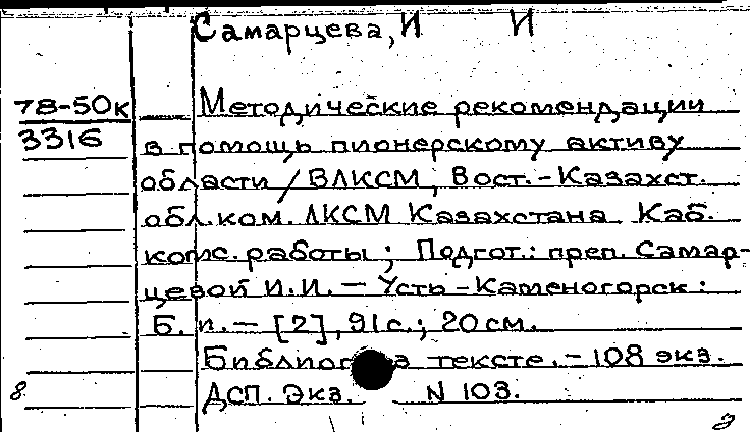 Самарцева, И И
78-50к
3316
Методические рекомендации
в помощь пионерскому активу
области / ВЛКСМ, Вост.-Казахст.
обл. ком. ЛКСМ Казахстана Каб.
комс. работы ; Подгот.: преп. Самар-
цевой И. И. — Усть-Каменогорск :
Б. и. — [2], 91 с. ; 20 см.
тексте. - 108 экз.
ДСП. Экз. N 103.
8.